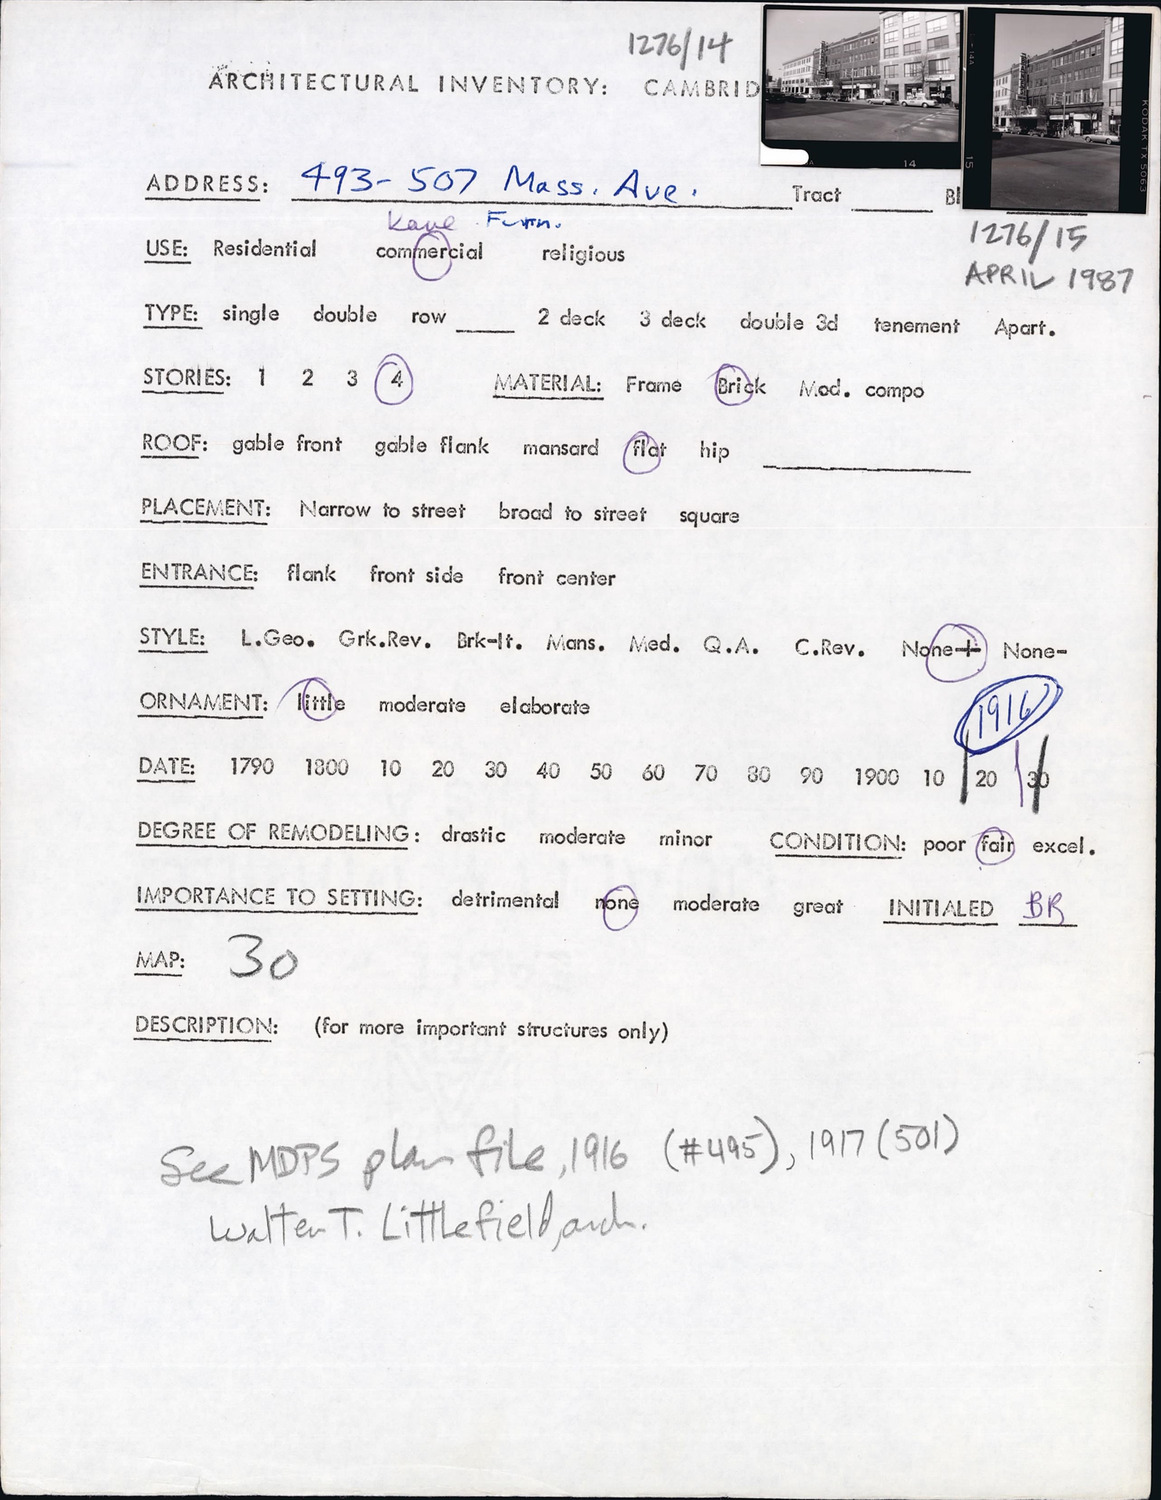 1276/14
ARCHITECTURAL INVENTORY: CAMBRID
ADDRESS: 493-507 Mass. Ave. Tract ____ Bl
Kane Furn.
USE: Residential commercial religious
1276/15
APRIL 1987
TYPE: single double row ____ 2 deck 3 deck double 3d tenement Apart.
STORIES: 1 2 3 4 MATERIAL: Frame Brick Mod. compo
ROOF: gable front gable flank mansard flat hip ____
PLACEMENT: Narrow to street broad to street square
ENTRANCE: flank front side front center
STYLE: L.Geo. Grk.Rev. Brk-It. Mans. Med. Q.A. C.Rev. None+ None-
ORNAMENT: little moderate elaborate
1916
DATE: 1790 1800 10 20 30 40 50 60 70 80 90 1900 10 20 30
DEGREE OF REMODELING: drastic moderate minor CONDITION: poor fair excel.
IMPORTANCE TO SETTING: detrimental none moderate great INITIALED BR
MAP: 30
DESCRIPTION: (for more important structures only)
See MDPS plan file, 1916 (#495), 1917 (501)
Walter T. Littlefield, arch.
14
15
14A
KODAK TX 5063